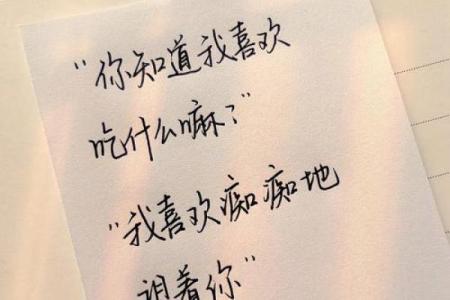 "你知道我喜欢
吃什么嘛?"
"我喜欢痴痴地
着你"